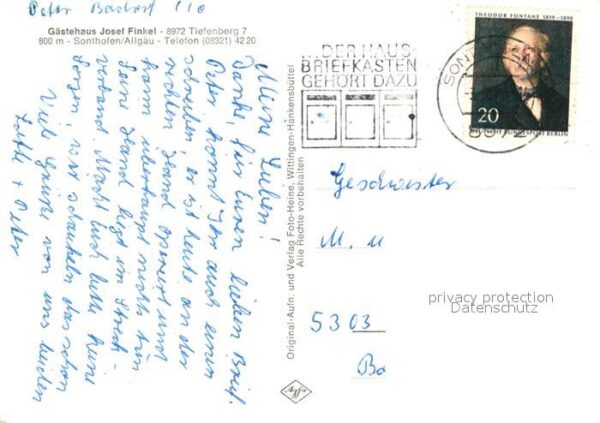 Peter Bachorf 110
Gästehaus Josef Finkel - 8972 Tiefenberg 7
800 m - Sonthofen/Allgäu - Telefon (08321) 42 20
Meine Lieben!
Danke für Euren lieben Brief.
Peter kommt jetzt auch zum
schreiben, er ist heute an der
rechten Hand operiert und
kann überhaupt nichts tun
ganze Hand liegt im Streck-
verband. Macht Euch bitte keine
Sorgen, wir schaukeln das schon
Viele Grüße von uns beiden
Lotte + Peter
Original-Aufn. und Verlag Foto-Heine, Wittingen-Hankensbüttel
Alle Rechte vorbehalten
Agfa
...DER HAUS
BRIEFKASTEN
GEHÖRT DAZU
SON
8972
THEODOR FONTANE 1819-1898
20
DEUTSCHE BUNDESPOST BERLIN
Geschwister
M. u
5303
Bo
privacy protection
Datenschutz